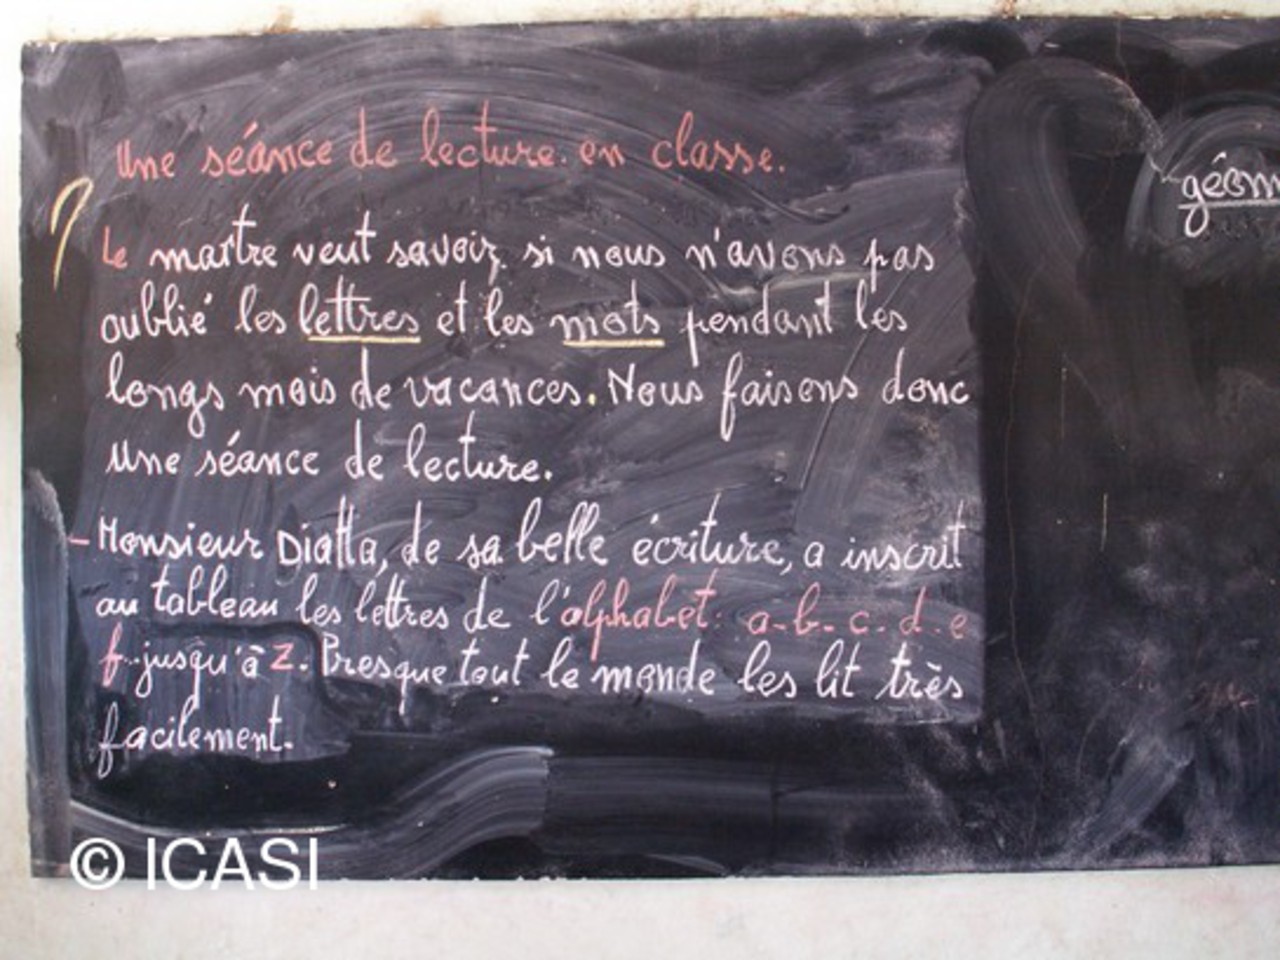 Une séance de lecture en classe.
Le maître veut savoir si nous n'avons pas
oublié les lettres et les mots pendant les
longs mois de vacances. Nous faisons donc
une séance de lecture.
- Monsieur Diatta, de sa belle écriture, a inscrit
au tableau les lettres de l'alphabet: a-b-c.d.e
f..jusqu'à z. Presque tout le monde les lit très
facilement.
géom
© ICASI